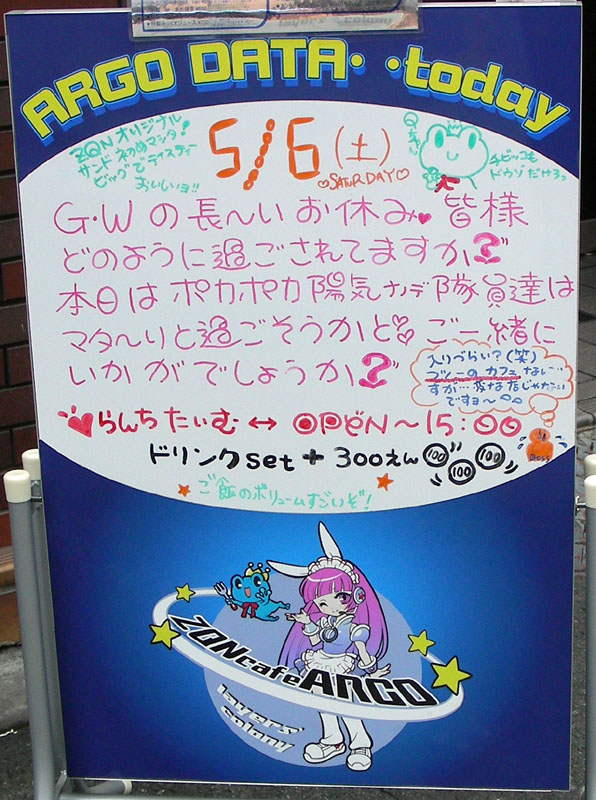 ARGO DATA・・today
ZQNオリジナル
サンド初めマシタ!
ビッグでテイスティー
おいしいヨ!!
5/6(土)
♡SATURDAY♡
チビッコも
ドウゾだけろっ
G・Wの長〜いお休み♥皆様
どのように過ごされてますか?
本日はポカポカ陽気ナノデ隊員達は
マタ〜リと過ごそうかと ご一緒に
いかがでしょうか?
入りづらい?(笑)
フツーのカフェ
ですョ〜
らんちたいむ↔OPEN〜15:00
BOSS
ドリンクset+300えん 100 100 100
★ご飯のボリュームすごいぞ!★
ZQNcafeARGO
layers'
colony